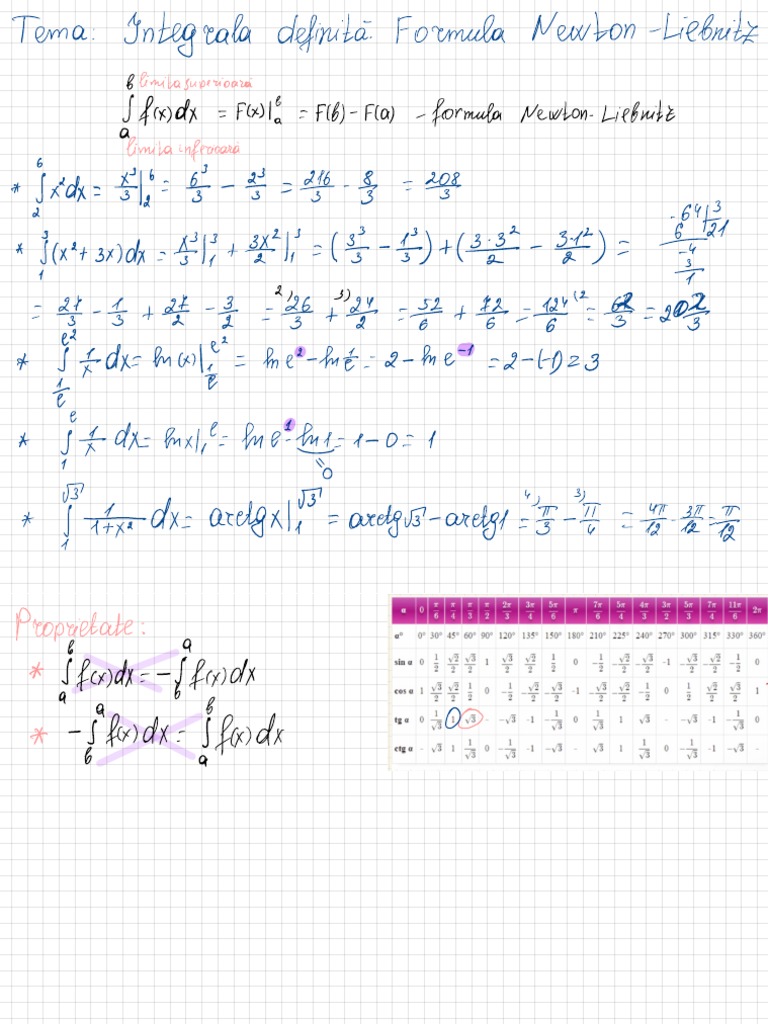 Tema: Integrala definită. Formula Newton-Liebnitz
b limita superioară
∫ f(x)dx = F(x)|ₐᵇ = F(b) - F(a) - formula Newton-Liebnitz
a
limita inferioara
* ∫₂⁶ x²dx = x³/3 |₂⁶ = 6³/3 - 2³/3 = 216/3 - 8/3 = 208/3
* ∫₁³ (x² + 3x)dx = x³/3 |₁³ + 3x²/2 |₁³ = (3³/3 - 1³/3) + (3·3²/2 - 3·1²/2) =
-64 | 3
6 21
-4
3
1
= 27/3 - 1/3 + 27/2 - 3/2 = ²⁾26/3 + ³⁾24/2 = 52/6 + 72/6 = 124/6 ⁽² = 62/3 = 20 2/3
* ∫_{1/e}^{e²} 1/x dx = ln(x)|_{1/e}^{e²} = ln e² - ln 1/e = 2 - ln e⁻¹ = 2 - (-1) = 3
* ∫₁ᵉ 1/x dx = ln x|₁ᵉ = ln e¹ - ln 1 = 1 - 0 = 1
= 0
* ∫₁^{√3} 1/(1+x²) dx = arctg x|₁^{√3} = arctg √3 - arctg 1 = ⁴⁾π/3 - ³⁾π/4 = 4π/12 - 3π/12 = π/12
Proprietate:
* ∫ₐᵇ f(x)dx = -∫_bᵃ f(x)dx
* -∫_bᵃ f(x)dx = ∫ₐᵇ f(x)dx
α 0 π/6 π/4 π/3 π/2 2π/3 3π/4 5π/6 π 7π/6 5π/4 4π/3 3π/2 5π/3 7π/4 11π/6 2π
α° 0° 30° 45° 60° 90° 120° 135° 150° 180° 210° 225° 240° 270° 300° 315° 330° 360°
sin α 0 1/2 √2/2 √3/2 1 √3/2 √2/2 1/2 0 -1/2 -√2/2 -√3/2 -1 -√3/2 -√2/2 -1/2 0
cos α 1 √3/2 √2/2 1/2 0 -1/2 -√2/2 -√3/2 -1 -√3/2 -√2/2 -1/2 0 1/2 √2/2 √3/2 1
tg α 0 1/√3 1 √3 - -√3 -1 -1/√3 0 1/√3 1 √3 - -√3 -1 -1/√3 0
ctg α - √3 1 1/√3 0 -1/√3 -1 -√3 - √3 1 1/√3 0 -1/√3 -1 -√3 -